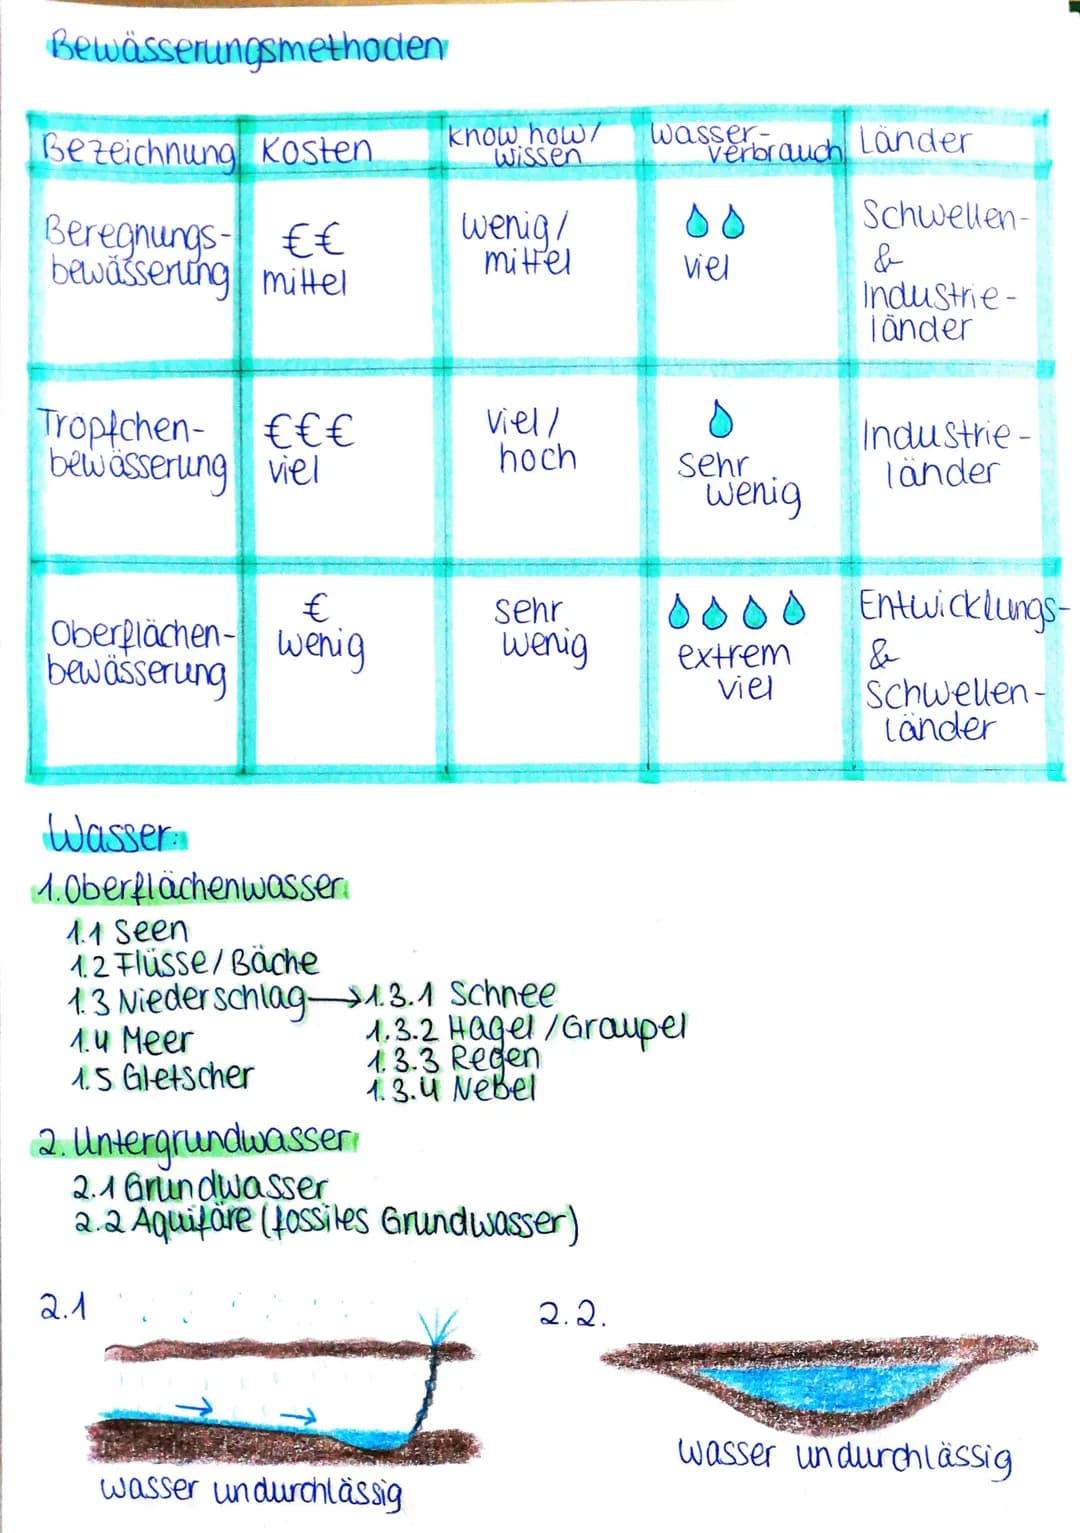 Bewässerungsmethoden
Bezeichnung Kosten know how/ wissen Wasser-verbrauch Länder
Beregnungs-
bewässerung
€€
mittel
wenig/
mittel
viel
Schwellen-
&
Industrie-
länder
Tröpfchen-
bewässerung
€€€
viel
viel/
hoch
sehr
wenig
Industrie-
länder
Oberflächen-
bewässerung
€
wenig
sehr
wenig
extrem
viel
Entwicklungs-
&
Schwellen-
länder
Wasser:
1. Oberflächenwasser
1.1 Seen
1.2 Flüsse/Bäche
1.3 Niederschlag → 1.3.1 Schnee
1.3.2 Hagel/Graupel
1.3.3 Regen
1.3.4 Nebel
1.4 Meer
1.5 Gletscher
2. Untergrundwasser
2.1 Grundwasser
2.2 Aquifäre (fossiles Grundwasser)
2.1
wasser undurchlässig
2.2.
wasser undurchlässig